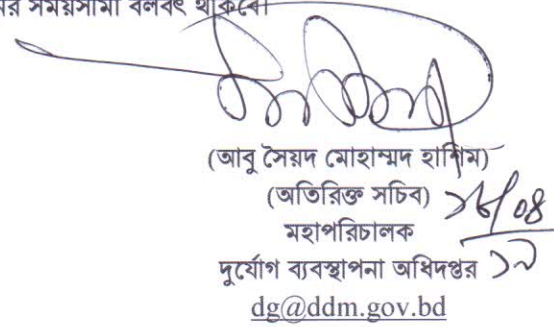 সময়সীমা বলবৎ থাকবে।
(আবু সৈয়দ মোহাম্মদ হাশিম)
(অতিরিক্ত সচিব)
মহাপরিচালক
দুর্যোগ ব্যবস্থাপনা অধিদপ্তর
dg@ddm.gov.bd